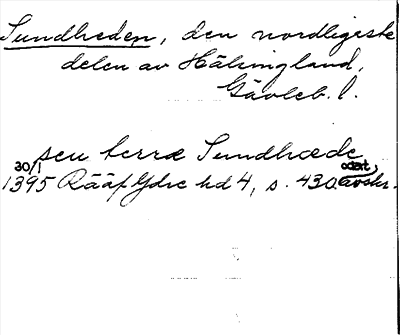 Sundheden, den nordligeste
delen av Hälsingland,
Gävleb. l.
seu terræ Sundhæde
30/1 odat,
1395 Rääf Ydre hd 4, s. 430. avskr.